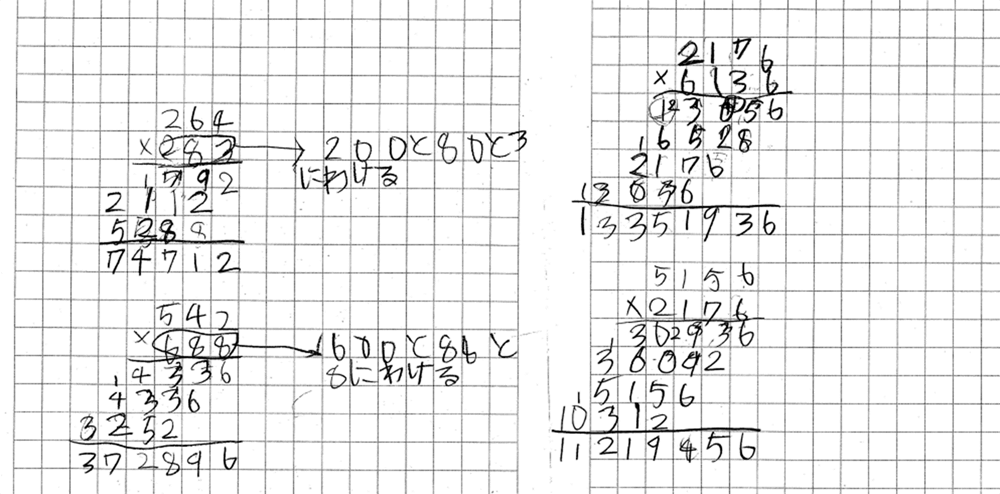 264
×283→200と80と3
にわける
1592
2112
528
74712
542
×688→600と80と
8にわける
4336
4336
3252
372896
2176
×6136
13056
6528
2176
13056
13351936
5156
×2176
30936
36092
5156
10312
11219456